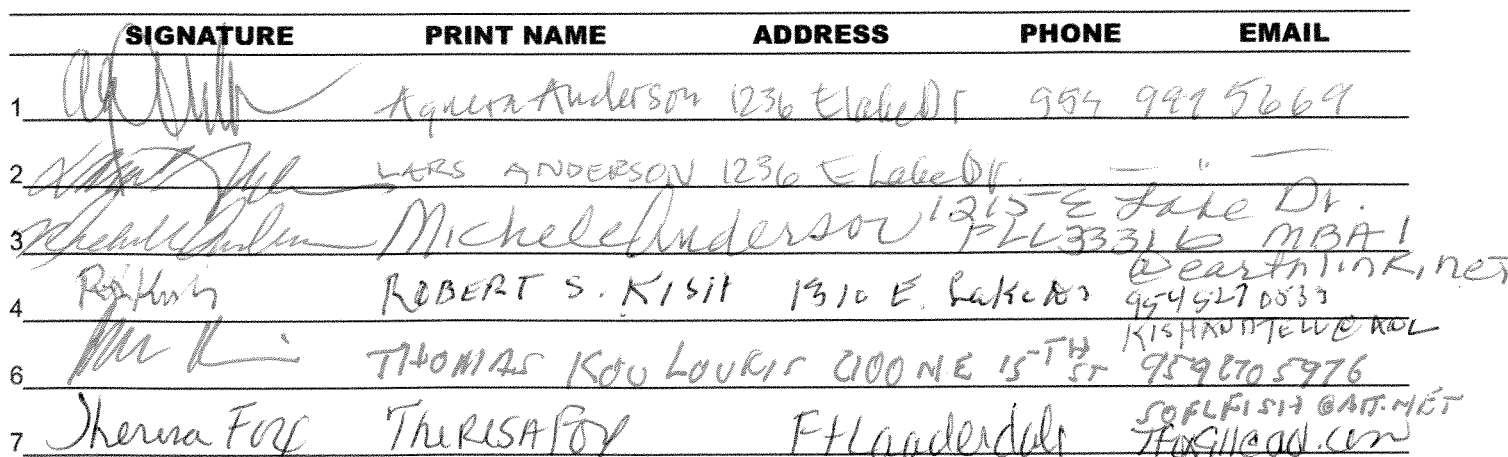 SIGNATURE PRINT NAME ADDRESS PHONE EMAIL
1 Anderson 1236 E Lake Dr 954 5669
2 LARS ANDERSON 1236 E Lake Dr. — " —
3 Michele Anderson 1215 E Lake Dr.
FLL 33316 MBA1
@earthlink.net
4 ROBERT S. KISH 1310 E. Lake Dr 954 527 0533
@AOL
6 THOMAS KOULOURIS 2100 NE 15TH ST
SOFLFISH@ATT.NET
7 Theresa Fox Theresa Fox Ft Lauderdale